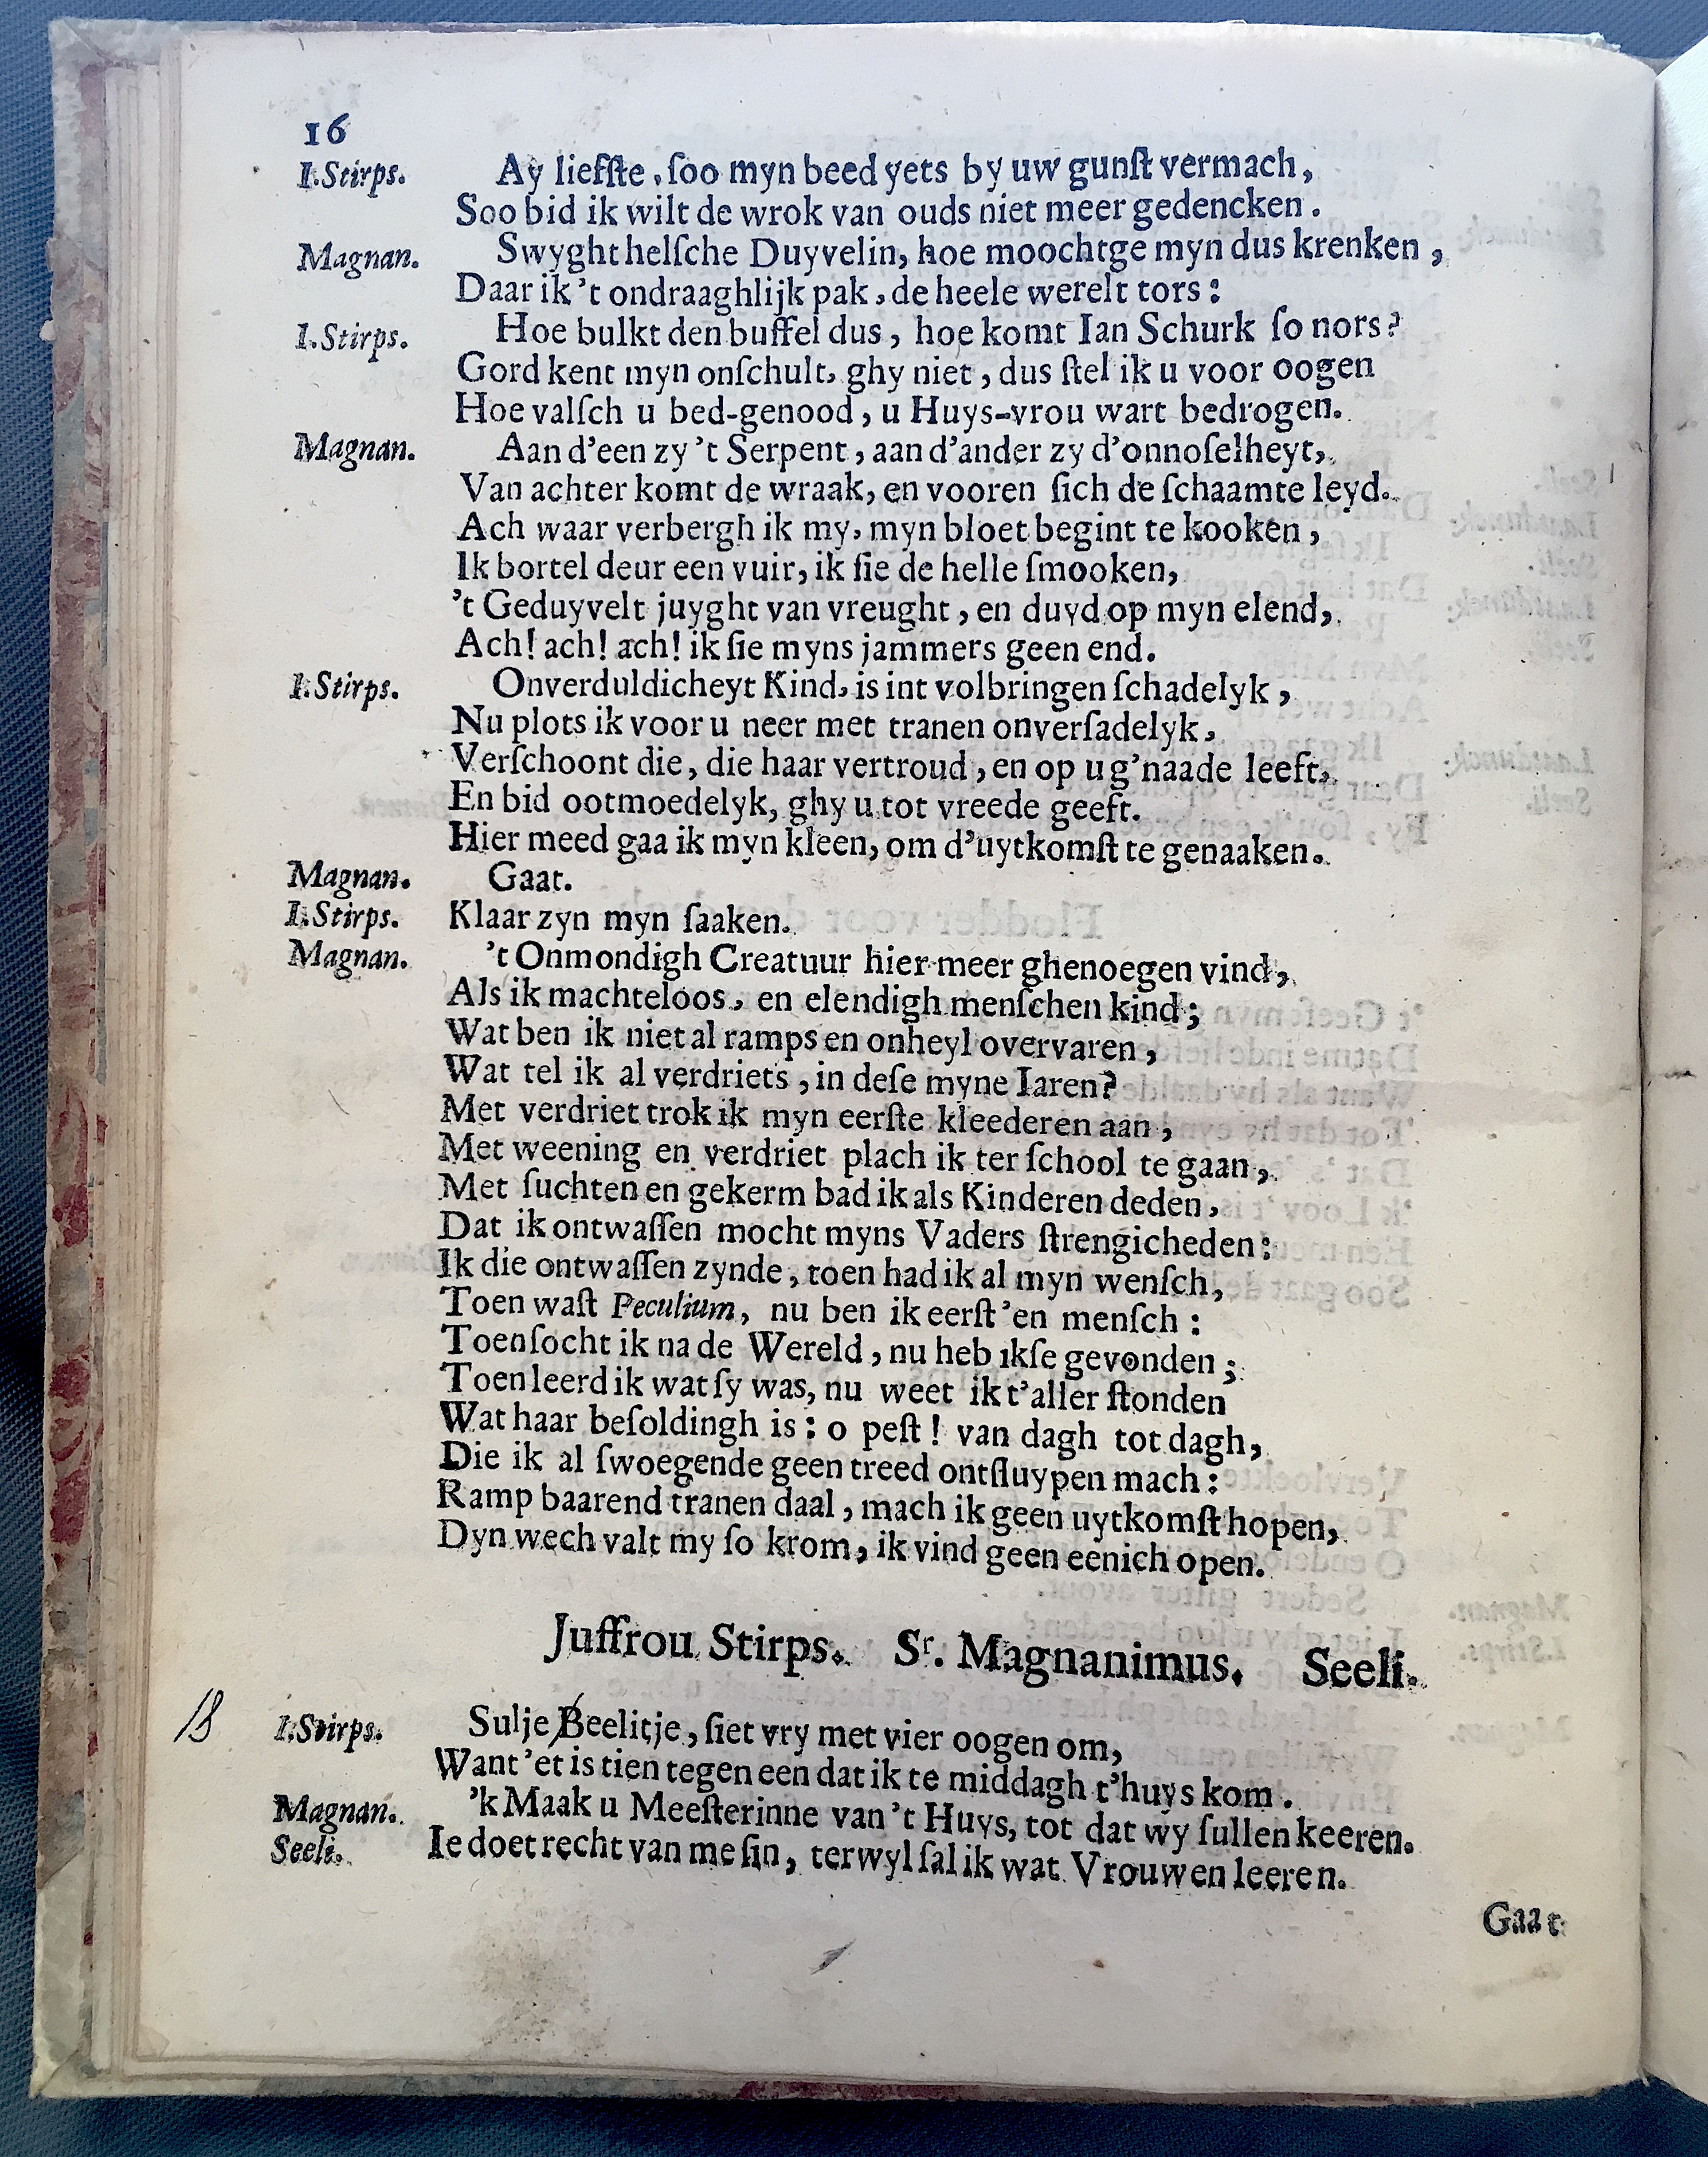 16
I.Stirps. Ay liefſte, ſoo myn beed yets by uw gunſt vermach,
Soo bid ik wilt de wrok van ouds niet meer gedencken.
Magnan. Swyght helſche Duyvelin, hoe moochtge myn dus krenken,
Daar ik 't ondraaghlijk pak, de heele werelt tors:
I.Stirps. Hoe bulkt den buffel dus, hoe komt Ian Schurk ſo nors?
Gord kent myn onſchult, ghy niet, dus ſtel ik u voor oogen
Hoe valſch u bed-genood, u Huys-vrou wart bedrogen.
Magnan. Aan d'een zy 't Serpent, aan d'ander zy d'onnoſelheyt,
Van achter komt de wraak, en vooren ſich de ſchaamte leyd.
Ach waar verbergh ik my, myn bloet begint te kooken,
Ik bortel deur een vuir, ik ſie de helle ſmooken,
't Geduyvelt juyght van vreught, en duyd op myn elend,
Ach! ach! ach! ik ſie myns jammers geen end.
I.Stirps. Onverduldicheyt Kind, is int volbringen ſchadelyk,
Nu plots ik voor u neer met tranen onverſadelyk,
Verſchoont die, die haar vertroud, en op u g'naade leeft,
En bid ootmoedelyk, ghy u tot vreede geeft.
Hier meed gaa ik myn kleen, om d'uytkomſt te genaaken.
Magnan. Gaat.
I.Stirps. Klaar zyn myn ſaaken.
Magnan. 't Onmondigh Creatuur hier meer ghenoegen vind,
Als ik machteloos, en elendigh menſchen kind;
Wat ben ik niet al ramps en onheyl overvaren,
Wat tel ik al verdriets, in deſe myne Iaren?
Met verdriet trok ik myn eerſte kleederen aan,
Met weening en verdriet plach ik ter ſchool te gaan,
Met ſuchten en gekerm bad ik als Kinderen deden,
Dat ik ontwaſſen mocht myns Vaders ſtrengicheden:
Ik die ontwaſſen zynde, toen had ik al myn wenſch,
Toen waſt Peculium, nu ben ik eerſt 'en menſch:
Toen ſocht ik na de Wereld, nu heb ikſe gevonden;
Toen leerd ik wat ſy was, nu weet ik t'aller ſtonden
Wat haar beſoldingh is: o peſt! van dagh tot dagh,
Die ik al ſwoegende geen treed ontſluypen mach:
Ramp baarend tranen daal, mach ik geen uytkomſt hopen,
Dyn wech valt my ſo krom, ik vind geen eenich open.
Juffrou Stirps. Sr. Magnanimus. Seeli.
I.Stirps. Sulje Beelitje, ſiet vry met vier oogen om,
Want 'et is tien tegen een dat ik te middagh t'huys kom.
Magnan. 'k Maak u Meeſterinne van 't Huys, tot dat wy ſullen keeren.
Seeli. Ie doet recht van me ſin, terwyl ſal ik wat Vrouwen leeren.
Gaat